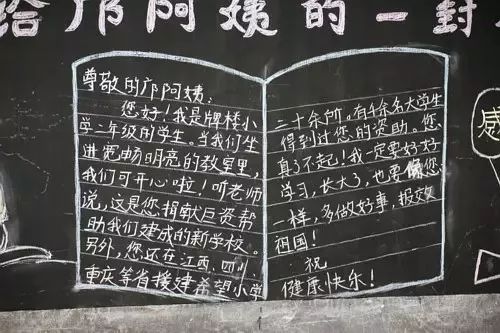 给邝阿姨的一封
尊敬的邝阿姨：
您好！我是牌楼小
学二年级的学生。当我们坐
进宽畅明亮的教室里，
我们可开心啦！听老师
说，这是您捐献巨资帮
助我们建成的新学校。
另外，您还在江西、四川
重庆等省接建希望小学
三十余所。有千余名大学生
得到过您的资助。您
真了不起！我一定要好好
学习，长大了，也要像您
一样，多做好事，报效
祖国！
祝
健康快乐！
感